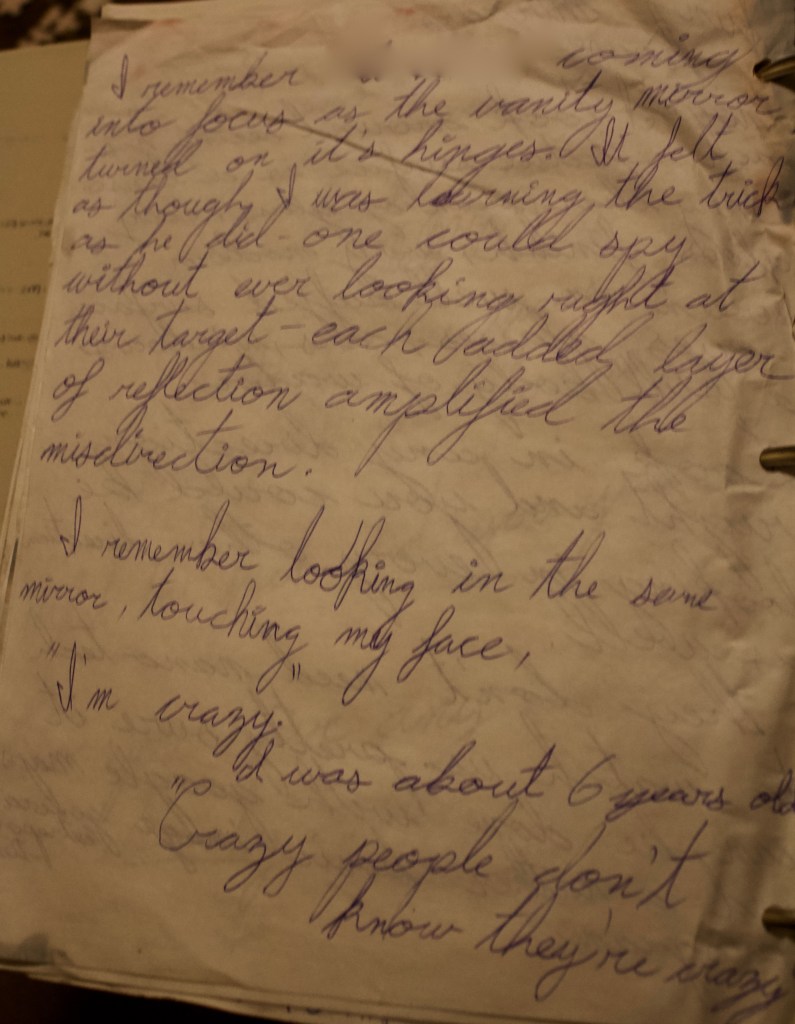 I remember coming
into focus as the vanity mirror
turned on it's hinges. It felt
as though I was learning the trick
as he did - one could spy
without ever looking right at
their target - each added layer
of reflection amplified the
misdirection.
I remember looking in the same
mirror, touching my face,
"I'm crazy."
I was about 6 years old
"Crazy people don't
know they're crazy